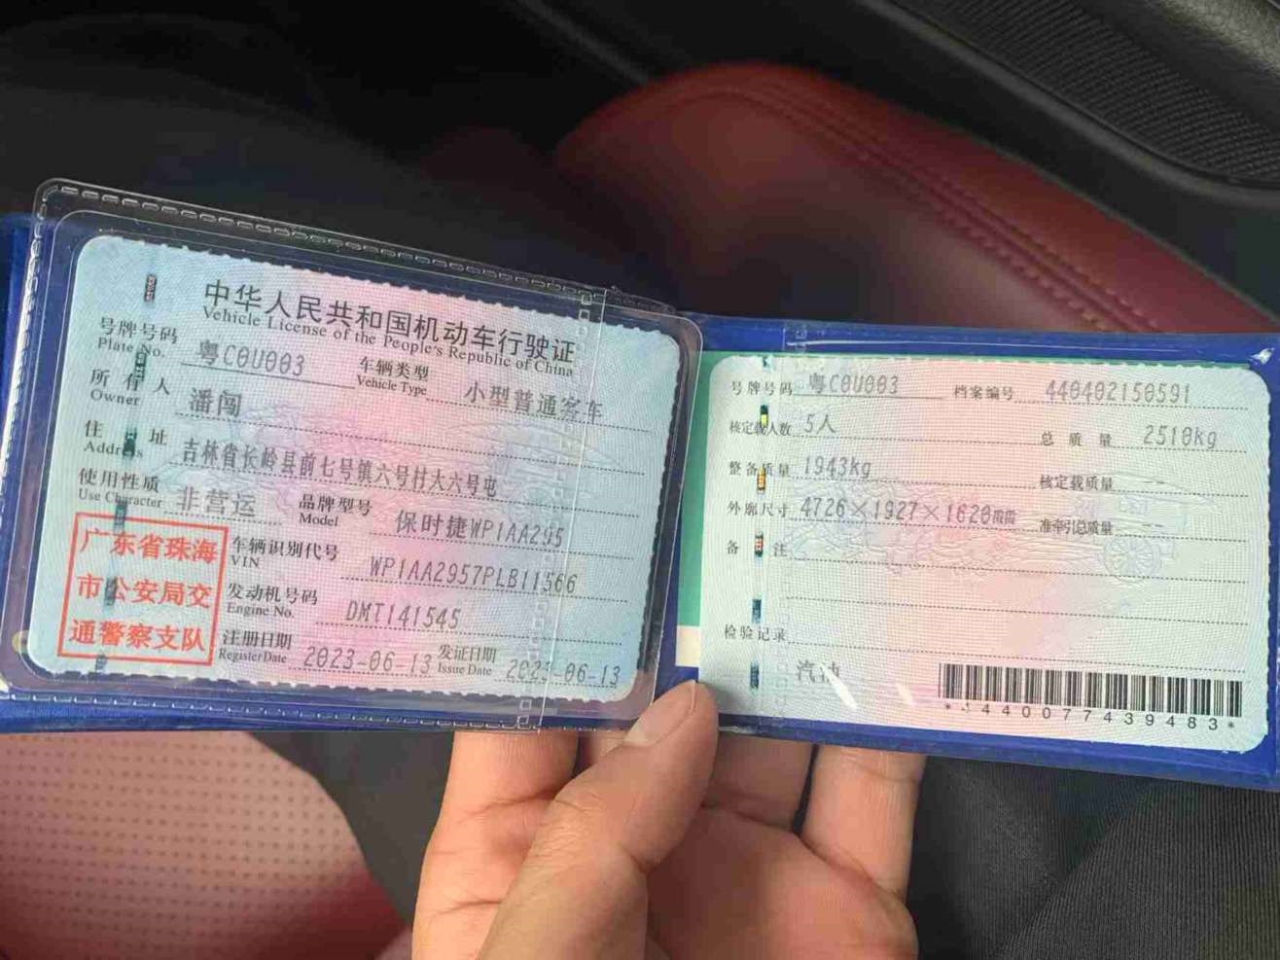 中华人民共和国机动车行驶证
Vehicle License of the People's Republic of China
号牌号码 粤C0U003 车辆类型 小型普通客车
Plate No. Vehicle Type
所有人 潘闯
Owner
住址 吉林省长岭县前七号镇六号村大六号屯
Address
使用性质 非营运 品牌型号 保时捷WP1AA295
Use Character Model
广东省珠海
市公安局交
通警察支队
车辆识别代号 WP1AA2957PLB11566
VIN
发动机号码 DMT141545
Engine No.
注册日期 2023-06-13 发证日期 2023-06-13
Register Date Issue Date
号牌号码 粤C0U003 档案编号 440402150591
核定载人数 5人 总质量 2510kg
整备质量 1943kg 核定载质量 --
外廓尺寸 4726×1927×1620mm 准牵引总质量 --
备注
检验记录
汽油
*4400774394 83*